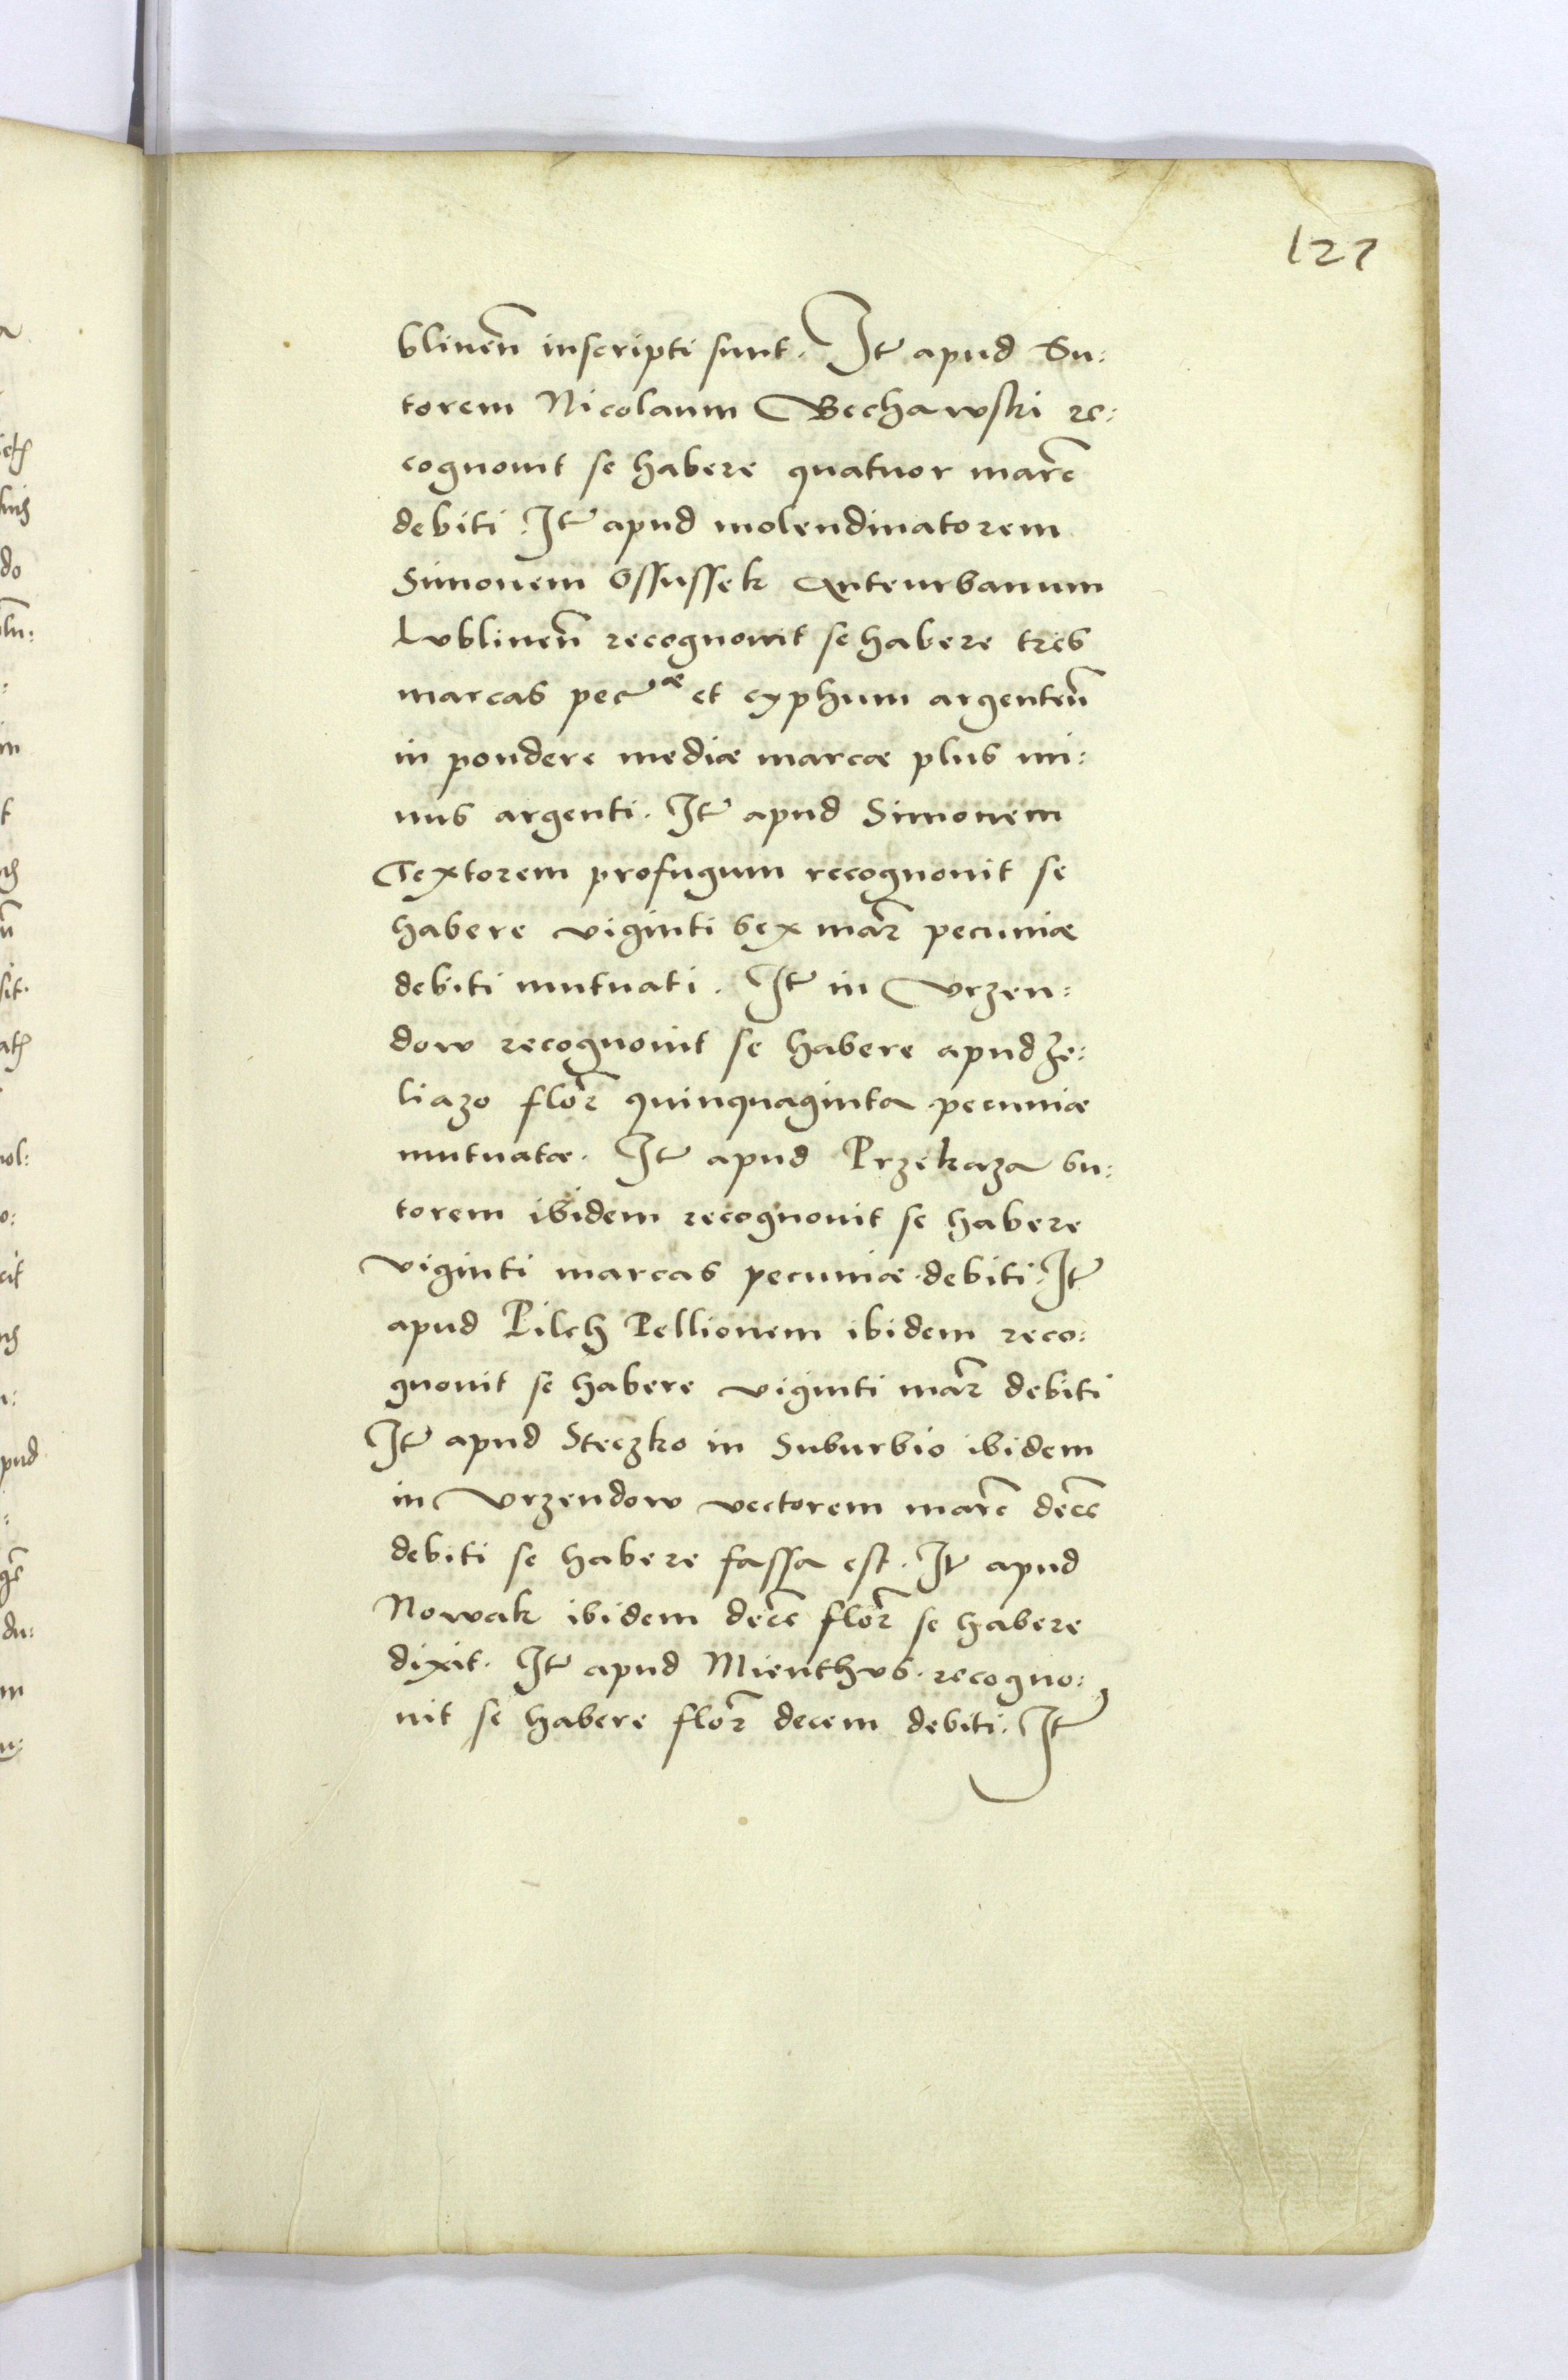 127
blinen̄ inscripti sunt. Itē apud Su:
torem Nicolaum Bechawski re:
cognouit se habere quatuor marc̄
debiti. Itē apud molendinatorem
Simonem Ossussek Anteurbanum
Lublinen̄ recognouit se habere tres
marcas pec̄æ et cyphum argenteū
in pondere mediæ marcæ plus mi:
nus argenti. Itē apud Simonem
Textorem profugum recognouit se
habere viginti sex mar̄ pecuniæ
debiti mutuati. Itē in Vrzen:
dow recognouit se habere apud Ze:
liazo flor̄ quinquaginta pecuniæ
mutuatæ. Itē apud Przekaza su:
torem ibidem recognouit se habere
viginti marcas pecuniæ debiti. Itē
apud Pilch Pellionem ibidem reco:
gnouit se habere viginti mar̄ debiti
Itē apud Steczko in Suburbio ibidem
in Vrzendow vectorem marc̄ dec̄e
debiti se habere fassa est. Itē apud
Nowak ibidem dec̄e flor̄ se habere
dixit. Itē apud Mienthus recogno:
uit se habere flor̄ decem debiti. Itē